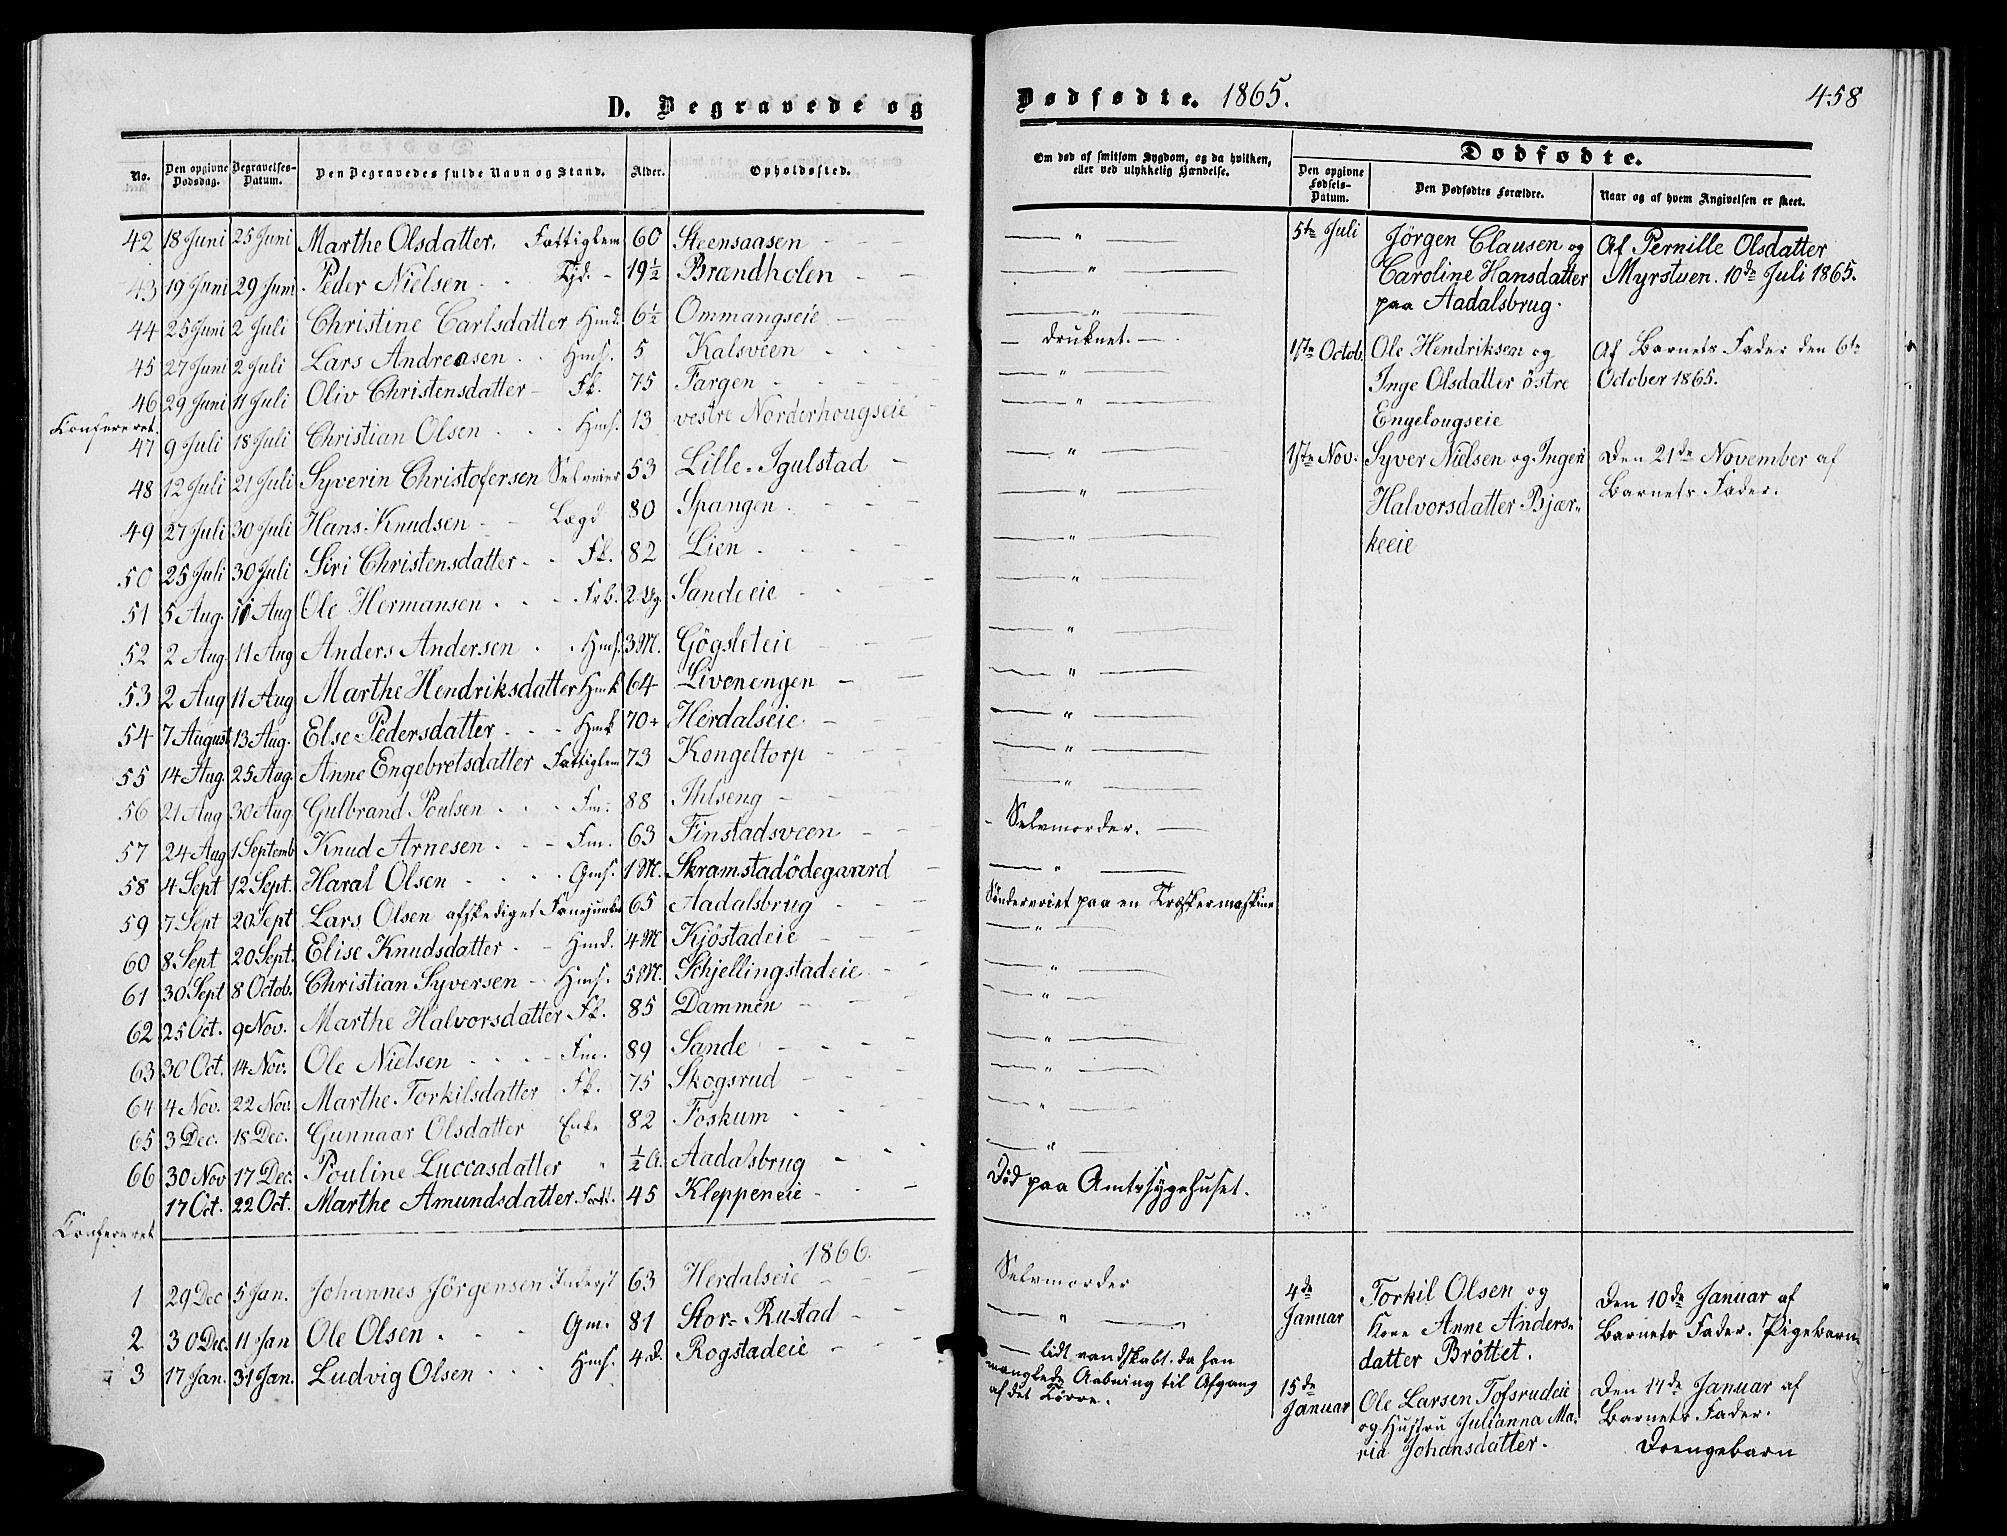 D. Begravede og
No. Den opgivne Dødsdag. Begravelses-Datum. Den Begravedes fulde Navn og Stand. Alder. Opholdssted.
42 18 Juni 25 Juni Marthe Olsdatter. Fattiglem 60 Steensaasen
43 19 Juni 29 Juni Peder Nielsen Tjd. 19½ Brændholen
44 25 Juni 2 Juli Christine Carlsdatter Hmd. 6½ Ommangseie
45 27 Juni 2 Juli Lars Andreasen Hms. 5 Kalsveen
46 29 Juni 11 Juli Oliv Christensdatter Fk. 75 Fargen
Confereret.
47 9 Juli 18 Juli Christian Olsen Hms. 13 vestre Norderhougseie
48 12 Juli 21 Juli Syverin Christofersen Selveier 53 Lille-Igulstad
49 27 Juli 30 Juli Hans Knudsen Lægd 80 Spangen
50 25 Juli 30 Juli Siri Christensdatter Fk. 82 Lien
51 5 Aug. 11 Aug Ole Hermansen 2 Ug. Sandeeie
52 2 Aug. 11 Aug Anders Andersen Hms. 3 M. Gögsleteie
53 2 Aug 11 Aug Marthe Hendriksdatter Hmk 64 Livenengen
54 7 August 13 Aug. Else Pedersdatter Hmk 70 Herdalseie
55 14 Aug. 25 Aug. Anne Engebretsdatter Fattiglem 73 Kongeltorp
56 21 Aug 30 Aug Gulbrand Poulsen Fm. 88 Ihlseng
57 24 Aug 1 Septemb Knud Arnesen Fm. 63 Finstadsveen
58 4 Sept 12 Sept. Haral Olsen Gms. 1 M. Skramstadödegaard
59 7 Sept 20 Sept Lars Olsen afskediget Fanejunker 65 Aadalsbrug
60 8 Sept 20 Sept. Elise Knudsdatter Hmd. 4 M Kjöstadeie
61 30 Sept 8 Octob. Christian Syversen Hms. 5 M. Schjellingstadeie
62 25 Oct. 9 Nov. Marthe Halvorsdatter Fk. 85 Dammen
63 30 Oct. 14 Nov. Ole Nielsen Fm. 89 Sande
64 4 Nov. 22 Nov. Marthe Torkilsdatter Fk. 75 Skogsrud
65 3 Dec. 18 Dec. Gunnaar Olsdatter Enke 82 Foskum
66 30 Nov 17 Dec. Pouline Luccasdatter " ½ A. Aadalsbrug
17 Oct. 22 Oct. Marthe Amundsdatter Fatt. 45 Kleppeneie
Confereret
1866.
1 29 Dec 5 Jan. Johannes Jörgensen Inderst 63 Herdalseie
2 30 Dec. 11 Jan Ole Olsen Gm. 81 Stor-Rustad
3 17 Jan. 31 Jan. Ludvig Olsen Hms. 4 d. Rogstadeie
Dødfødte. 1865.
458
Om død af smitsom Sygdom, og da hvilken,
eller ved ulykkelig Hændelse.
Dødfødte.
Den opgivne Fødsels-Datum. Den Dødfødtes Forældre. Naar og af hvem Angivelsen er skeet.
5te Juli Jörgen Clausen og Af Pernille Olsdatter
Caroline Hansdatter Myrstuen. 10de Juli 1865.
paa Aadalsbrug.
druknet.
1ste Octob. Ole Hendriksen og Af Barnets Fader den 6te
Inge Olsdatter östre October 1865.
Engelougseie
1ste Nov. Syver Nielsen og Ingeri Den 21de November af
Halvorsdatter Bjær- Barnets Fader.
keeie
Selvmorder.
Sönderreiet paa en Træskermaskine
Död paa Amtssygehuset.
Selvmorder
4de Januar Torkil Olsen og Den 10de Januar af
Kone Anne Anders- Barnets Fader. Pigebarn
datter Bröttet.
lidt vandskabt. da han
manglede Aabning til Afgang
af det Törre.
15de Januar Ole Larsen Tofsrudeie Den 17de Januar af
og Hustru Julianna Ma- Barnets Fader.
ria Johansdatter. Drengebarn